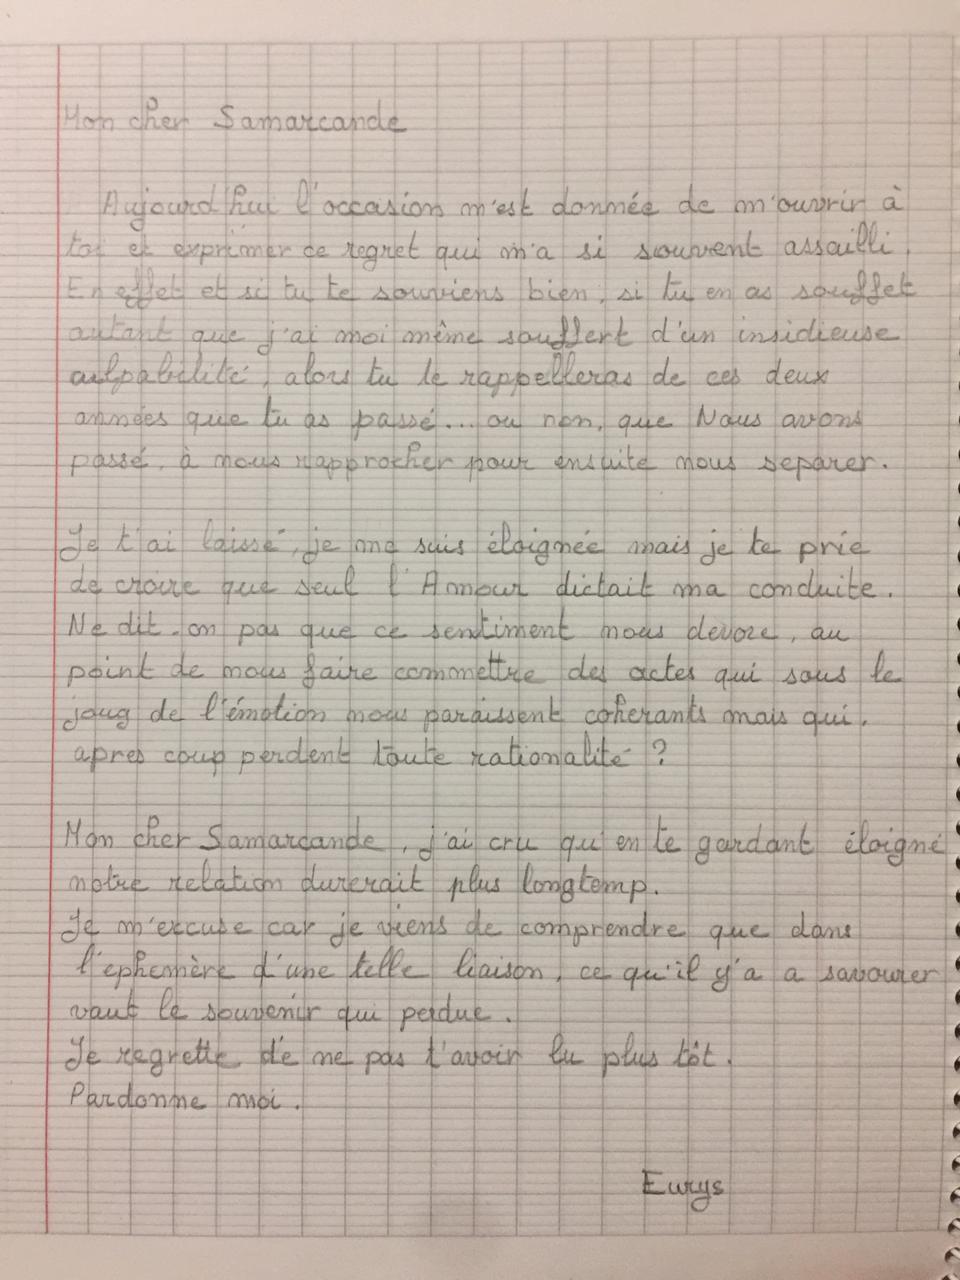 Mon cher Samarcande
Aujourd'hui l'occasion m'est donnée de m'ouvrir à
toi et exprimer ce regret qui m'a si souvent assailli.
En effet et si tu te souviens bien, si tu en as souffet
autant que j'ai moi même souffert d'un insidieuse
culpabilité, alors tu te rappelleras de ces deux
années que tu as passé... ou non, que Nous avons
passé, à nous rapprocher pour ensuite nous separer.
Je t'ai laissé, je me suis éloignée mais je te prie
de croire que seul l'Amour dictait ma conduite.
Ne dit-on pas que ce sentiment nous devore, au
point de nous faire commettre des actes qui sous le
joug de l'émotion nous paraissent coherants mais qui,
apres coup perdent toute rationalité ?
Mon cher Samarcande, j'ai cru qu'en te gardant éloigné
notre relation durerait plus longtemp.
Je m'excuse car je viens de comprendre que dans
l'ephemère d'une telle liaison, ce qu'il y'a a savourer
vaut le souvenir qui perdue.
Je regrette de ne pas t'avoir lu plus tôt.
Pardonne moi.
Eurys